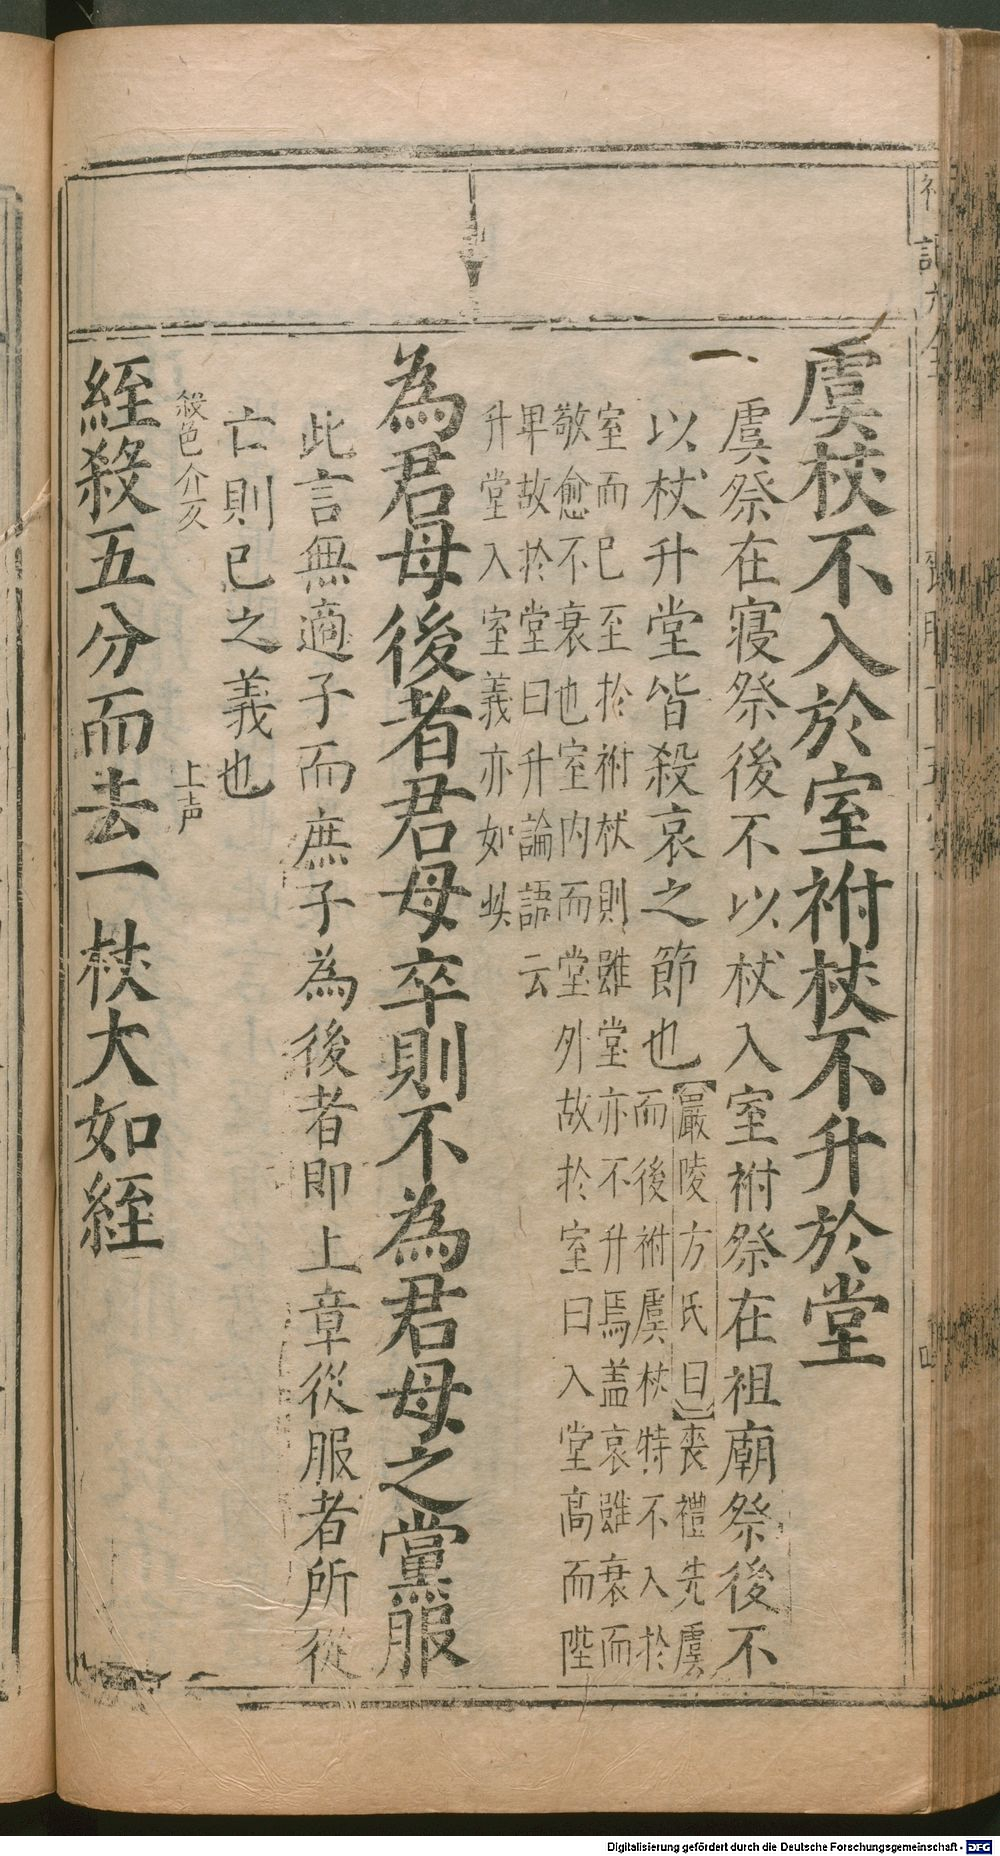 虞杖不入於室祔杖不升於堂
虞祭在寢祭後不以杖入室祔祭在祖廟祭後不
以杖升堂皆殺哀之節也
【嚴陵方氏曰】喪禮先虞
而後祔虞杖特不入於
室而已至於祔杖則雖堂亦不升焉盖哀雖衰而
敬愈不衰也室內而堂外故於室曰入堂高而陛
卑故於堂曰升論語云
升堂入室義亦如此
為君母後者君母卒則不為君母之黨服
此言無適子而庶子為後者即上章從服者所從
亡則已之義也
殺色介反
上声
絰殺五分而去一杖大如絰
Digitalisierung gefördert durch die Deutsche Forschungsgemeinschaft - DFG